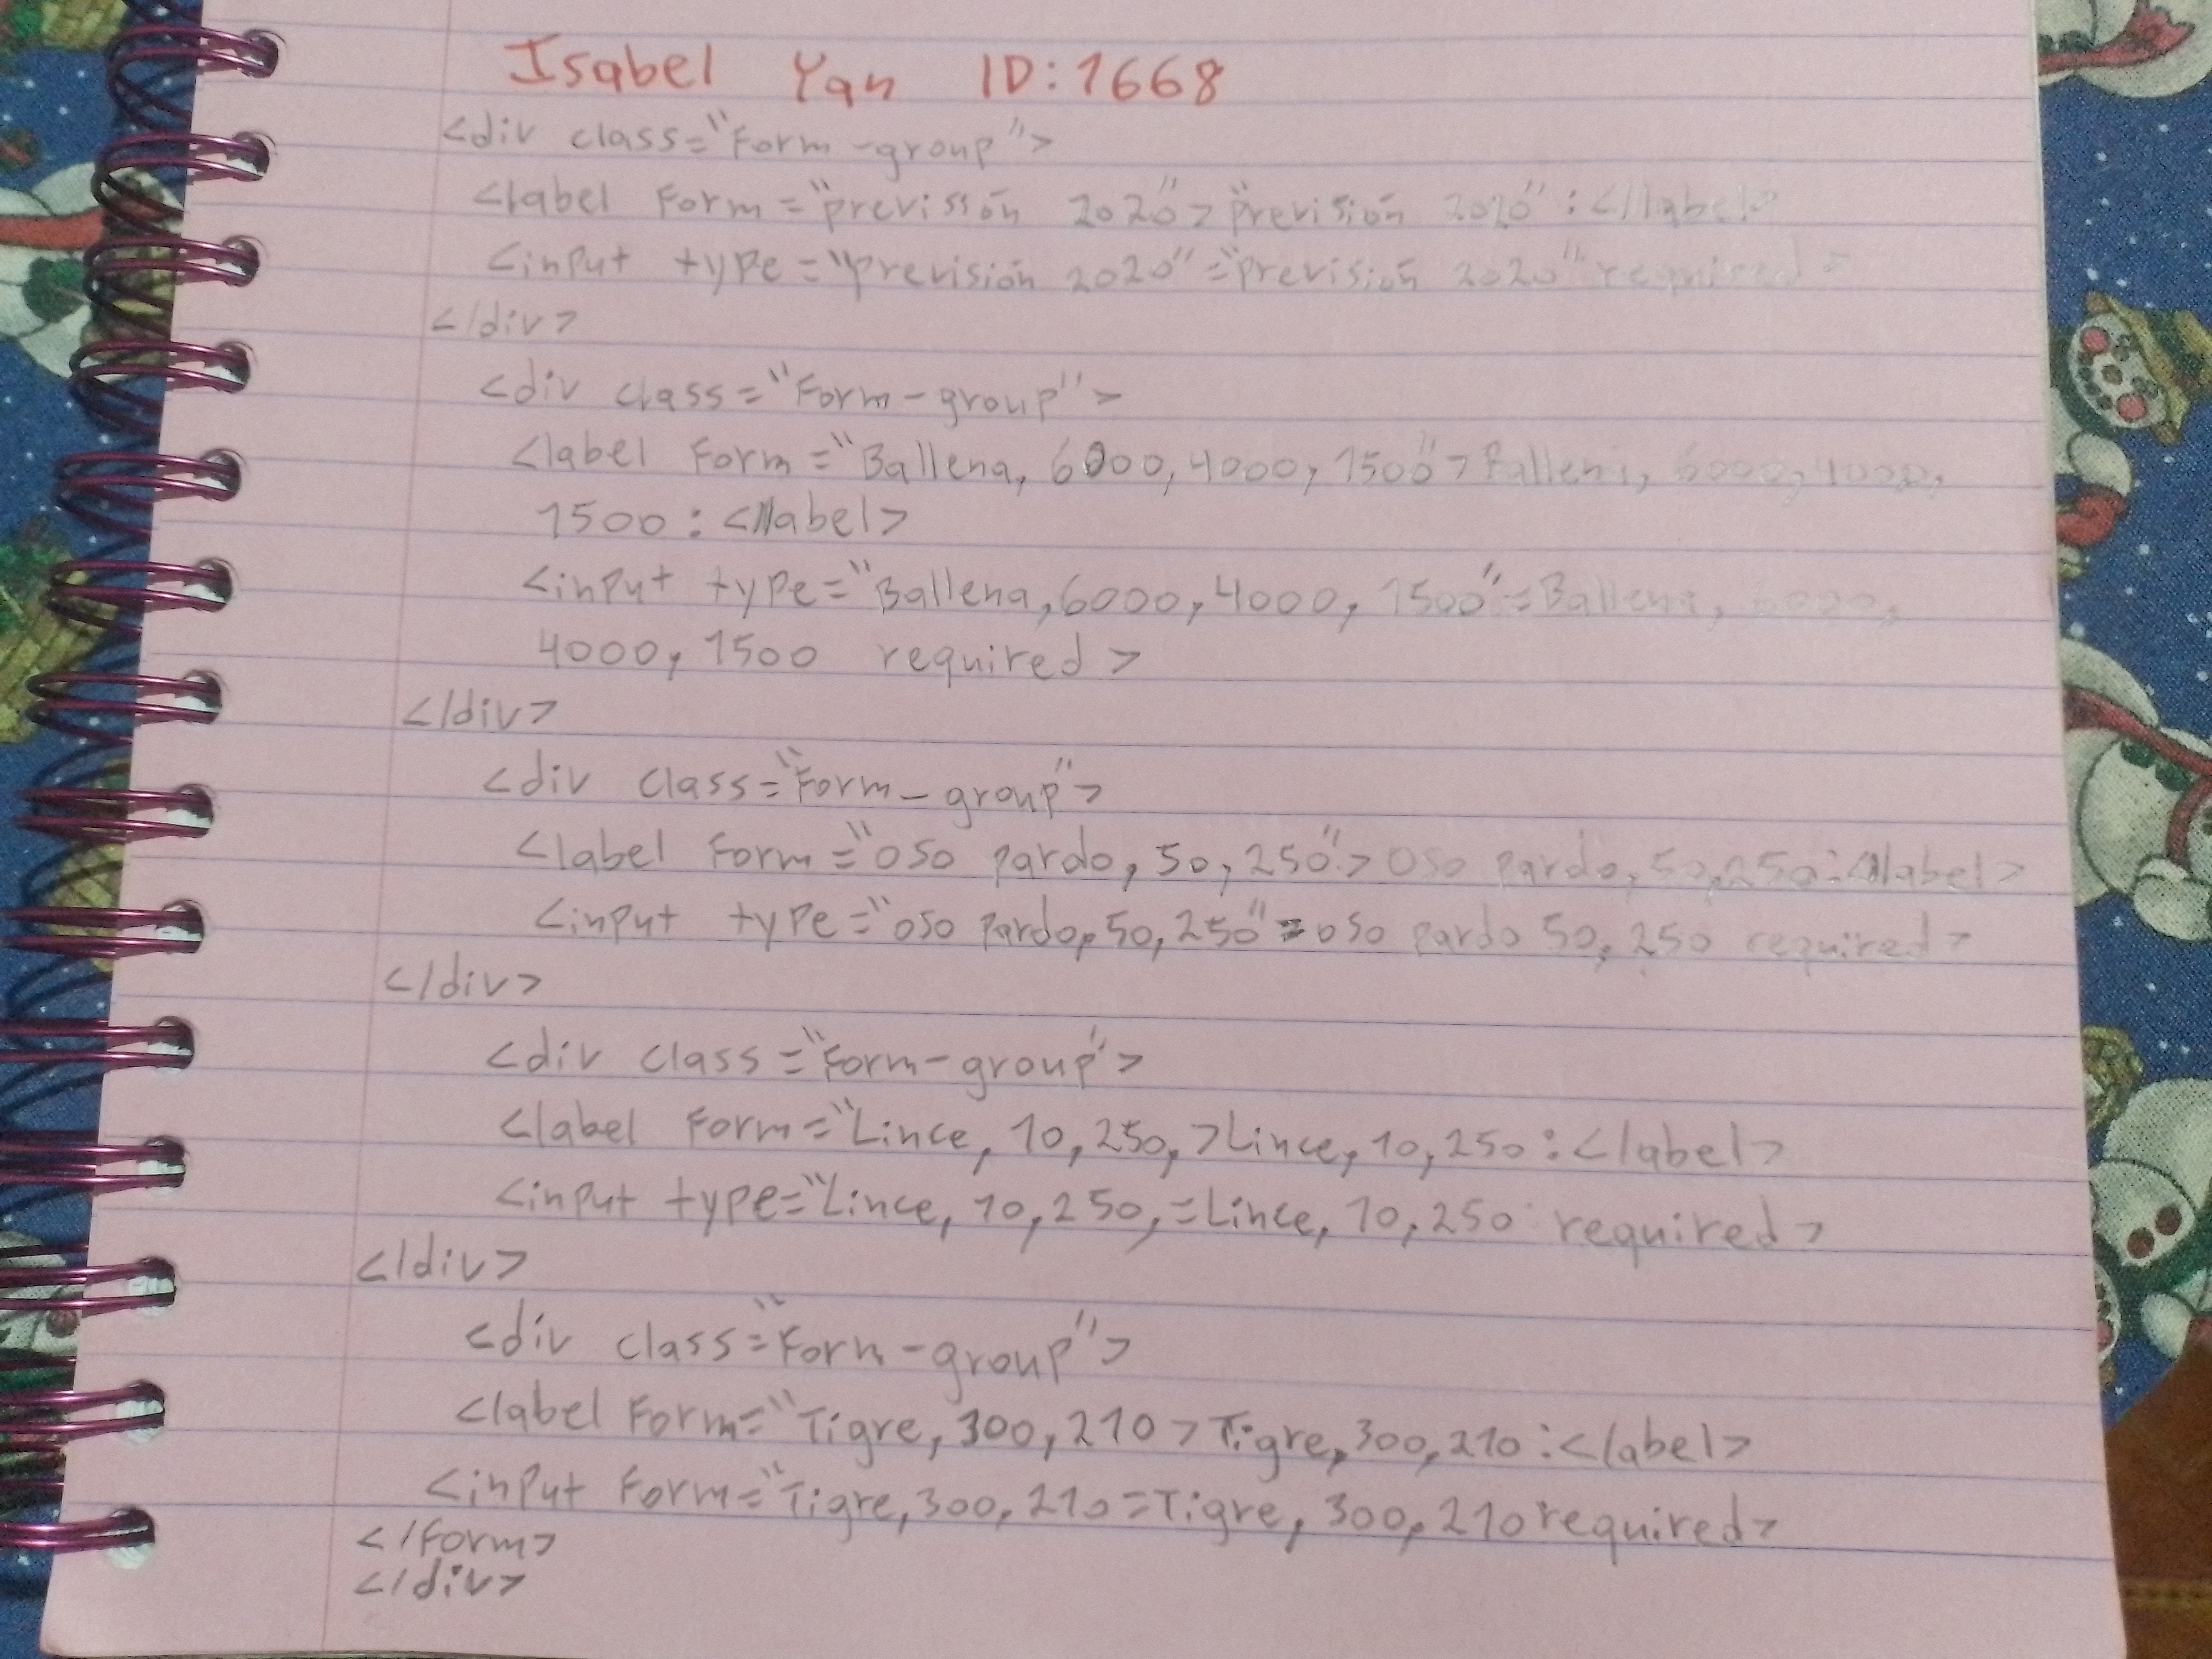 Isabel Yan ID:1668
<div class="Form-group">
<label Form="previssión 2020">"previsión 2020":</label>
<input type="previsión 2020"="previsión 2020" required>
</div>
<div class="Form-group">
<label Form="Ballena, 6000, 4000, 1500">Ballena, 6000, 4000,
1500:</label>
<input type="Ballena, 6000, 4000, 1500"=Ballena, 6000,
4000, 1500 required>
</div>
<div class="Form-group">
<label Form="oso pardo, 50, 250">oso pardo, 50, 250:</label>
<input type="oso pardo, 50, 250"=oso pardo 50, 250 required>
</div>
<div class="Form-group">
<label Form="Lince, 10, 250,>Lince, 10, 250:</label>
<input type="Lince, 10, 250,=Lince, 10, 250 required>
</div>
<div class="Form-group">
<label Form="Tigre, 300, 210>Tigre, 300, 210:</label>
<input Form="Tigre, 300, 210=Tigre, 300, 210 required>
</form>
</div>